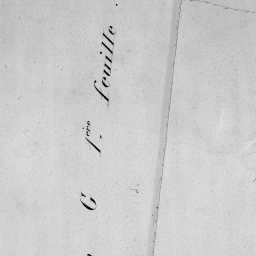 G 1ère feuille.